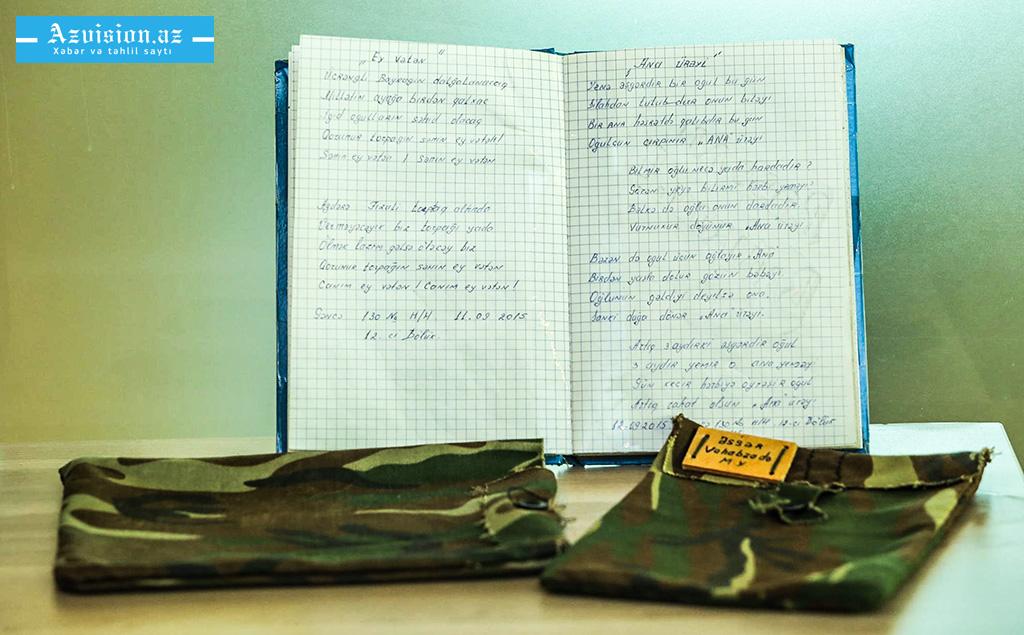 Azvision.az
Xəbər və təhlil saytı
„Ey vətən"
Üçrəngli Bayrağın dalğalanacag
Millətin ayağa birdən galxac
İgid oğulların şəhid olacag
Qorunur torpağın sənin ey vətən!
Sənin ey vətən! Sənin ey vətən
Ağdərə Fizuli torpag altında
Verməyəcəyik biz torpağı yada
Ölmək lazım gəlsə öləcəy biz
Qorunur torpağın sənin ey vətən
Canım ey vətən! Canım ey vətən!
Gəncə 130 № H/H. 11.09 2015
12. ci Bölük.
„Ana ürəyi"
Yenə əsgərdir bir oğul bu gün
Silahdan tutubdur onun biləyi
Bir ana həsrətdə qalıbdır bu gün
Oğulçun çırpınır „ANA" ürəyi
Bilmir oğlu necə yada hardadır?
bilirmi hərbi yeməyi?
Bəlkə də oğlu onun dardadır.
Vurnuxur döyünür „Ana" ürəyi
Bəzən də oğul üçün ağlayır „Ana"
Birdən yaşla dolur gözün bəbəyi
Oğlunun gəldiyi deyilsə ona.
Sanki dağa dönər „Ana" ürəyi.
Artıq 3 aydırki əsgərdir oğul
3 aydır yemir o ana yeməyi
Gün keçir hərbiyə öyrəşir oğul
Artıq rahat olsun „Ana" ürəyi
12.09.2015 130 № H/H 12-ci Bölük
Əsgər
Vahabzadə
M Y